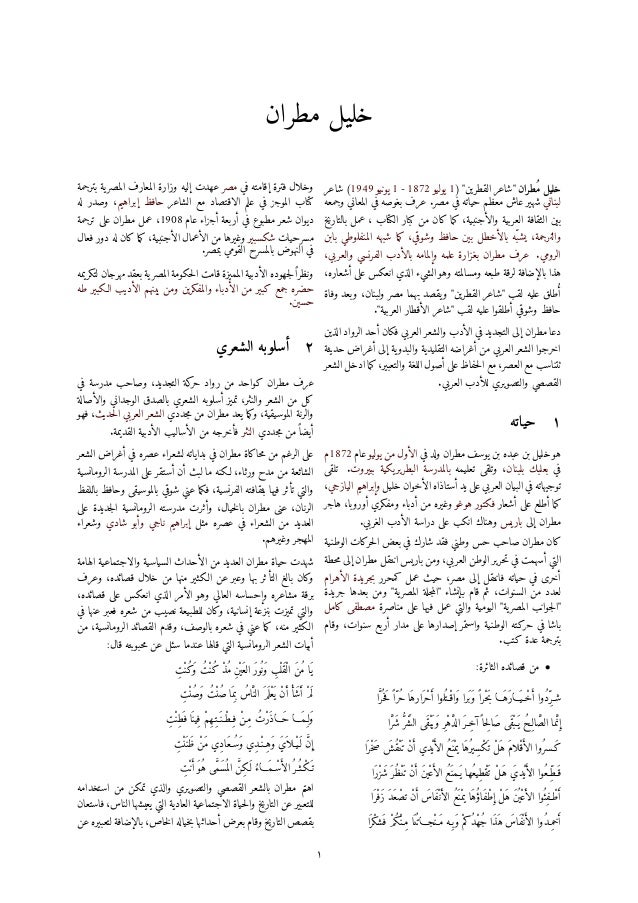 خليل مطران
خليل مُطران "شاعر القطرين" (1 يوليو 1872 - 1 يونيو 1949) شاعر
لبناني شهير عاش معظم حياته في مصر. عرف بغوصه في المعاني وجمعه
بين الثقافة العربية والأجنبية، كما كان من كبار الكتاب ، عمل بالتاريخ
والترجمة، يشبّه بالأخطل بين حافظ وشوقي، كما شبهه المنفلوطي بابن
الرومي. عرف مطران بغزارة علمه وإلمامه بالأدب الفرنسي والعربي،
هذا بالإضافة لرقة طبعه ومسالمته وهو الشيء الذي انعكس على أشعاره،
أُطلق عليه لقب "شاعر القطرين" ويقصد بهما مصر ولبنان، وبعد وفاة
حافظ وشوقي أطلقوا عليه لقب "شاعر الأقطار العربية".
دعا مطران إلى التجديد في الأدب والشعر العربي فكان أحد الرواد الذين
اخرجوا الشعر العربي من أغراضه التقليدية والبدوية إلى أغراض حديثة
تتناسب مع العصر، مع الحفاظ على أصول اللغة والتعبير، كما ادخل الشعر
القصصي والتصويري للأدب العربي.
١ حياته
هو خليل بن عبده بن يوسف مطران ولد في الأول من يوليو عام 1872م
في بعلبك بلبنان، وتلقى تعليمه بالمدرسة البطريركية ببيروت. تلقى
توجيهاته في البيان العربي على يد أستاذاه الأخوان خليل وإبراهيم اليازجي،
كما أطلع على أشعار فكتور هوغو وغيره من أدباء ومفكري أوروبا، هاجر
مطران إلى باريس وهناك انكب على دراسة الأدب الغربي.
كان مطران صاحب حس وطني فقد شارك في بعض الحركات الوطنية
التي أسهمت في تحرير الوطن العربي، ومن باريس انتقل مطران إلى محطة
أخرى في حياته فانتقل إلى مصر، حيث عمل كمحرر بجريدة الأهرام
لعدد من السنوات، ثم قام بإنشاء "المجلة المصرية" ومن بعدها جريدة
"الجوانب المصرية" اليومية والتي عمل فيها على مناصرة مصطفى كامل
باشا في حركته الوطنية واستمر إصدارها على مدار أربع سنوات، وقام
بترجمة عدة كتب.
• من قصائده الثائرة:
شَرِّدُوا أَخْيَارَهَا بَحْراً وَبَرا وَاقْتُلوا أَحْرَارهَا حُرّاً فَحُرَّا
إِنَّما الصَّالِحُ يَبْقَى صَالِحاً آخِرَ الدَّهْرِ وَيَبْقَى الشَّرُّ شَرَّا
كَسرُوا الأَقْلامَ هَلْ تَكْسِيرُهَا يَمْنَعُ الأَيْدي أَنْ تَنْقُشَ صَخْرَا
قَطِّعُوا الأَيْديَ هَلْ تَقْطِيعُها يَمنَعُ الأَعْينَ أَنْ تَنْظُرَ شَزْرَا
أَطْفِئُوا الأَعْيُنَ هَلْ إِطْفَاؤُهَا يَمْنَعُ الأَنْفَاسَ أَنْ تَصْعَدَ زَفْرَا
أَخمِدُوا الأَنْفَاسَ هَذَا جُهْدُكمْ وَبِه مَنْجاتُنَا مِنْكُمْ فَشكْرَا
وخلال فترة إقامته في مصر عهدت إليه وزارة المعارف المصرية بترجمة
كتاب الموجز في علم الاقتصاد مع الشاعر حافظ إبراهيم، وصدر له
ديوان شعر مطبوع في أربعة أجزاء عام 1908، عمل مطران على ترجمة
مسرحيات شكسبير وغيرها من الأعمال الأجنبية، كما كان له دور فعال
في النهوض بالمسرح القومي بمصر.
ونظراً لجهوده الأدبية المميزة قامت الحكومة المصرية بعقد مهرجان لتكريمه
حضره جمع كبير من الأدباء والمفكرين ومن بينهم الأديب الكبير طه
حسين.
٢ أسلوبه الشعري
عرف مطران كواحد من رواد حركة التجديد، وصاحب مدرسة في
كل من الشعر والنثر، تميز أسلوبه الشعري بالصدق الوجداني والأصالة
والرنة الموسيقية، وكما يعد مطران من مجددي الشعر العربي الحديث، فهو
أيضاً من مجددي النثر فأخرجه من الأساليب الأدبية القديمة.
على الرغم من محاكاة مطران في بداياته لشعراء عصره في أغراض الشعر
الشائعة من مدح ورثاء، لكنه ما لبث أن أستقر على المدرسة الرومانسية
والتي تأثر فيها بثقافته الفرنسية، فكما عني شوقي بالموسيقى وحافظ باللفظ
الرنان، عنى مطران بالخيال، وأثرت مدرسته الرومانسية الجديدة على
العديد من الشعراء في عصره مثل إبراهيم ناجي وأبو شادي وشعراء
المهجر وغيرهم.
شهدت حياة مطران العديد من الأحداث السياسية والاجتماعية الهامة
وكان بالغ التأثر بها وعبر عن الكثير منها من خلال قصائده، وعرف
برقة مشاعره وإحساسه العالي وهو الأمر الذي انعكس على قصائده،
والتي تميزت بنزعة إنسانية، وكان للطبيعة نصيب من شعره فعبر عنها في
الكثير منه، كما عني في شعره بالوصف، وقدم القصائد الرومانسية، من
أبيات الشعر الرومانسية التي قالها عندما سئل عن محبوبته قال:
يَا مُنَى الْقَلْبِ وَنُورَ العَيْنِ مُذْ كُنْتُ وَكُنْتِ
لَمْ أَشَأْ أَنْ يَعْلَمَ النَّاسُ بِمَا صُنْتُ وَصُنْتِ
وَلِمَا حَاذَرْتُ مِنْ فِطْنَتِهِمْ فِينَا فَطِنْتِ
إِنَّ لَيْلَايَ وَهِنْدِي وَسُعَادِي مَنْ ظَنَنْتِ
تَكْثُرُ الأَسْمَاءُ لَكِنَّ المُسَمَّى هُوَ أَنْتِ
اهتم مطران بالشعر القصصي والتصويري والذي تمكن من استخدامه
للتعبير عن التاريخ والحياة الاجتماعية العادية التي يعيشها الناس، فاستعان
بقصص التاريخ وقام بعرض أحداثها بخياله الخاص، بالإضافة لتعبيره عن
١